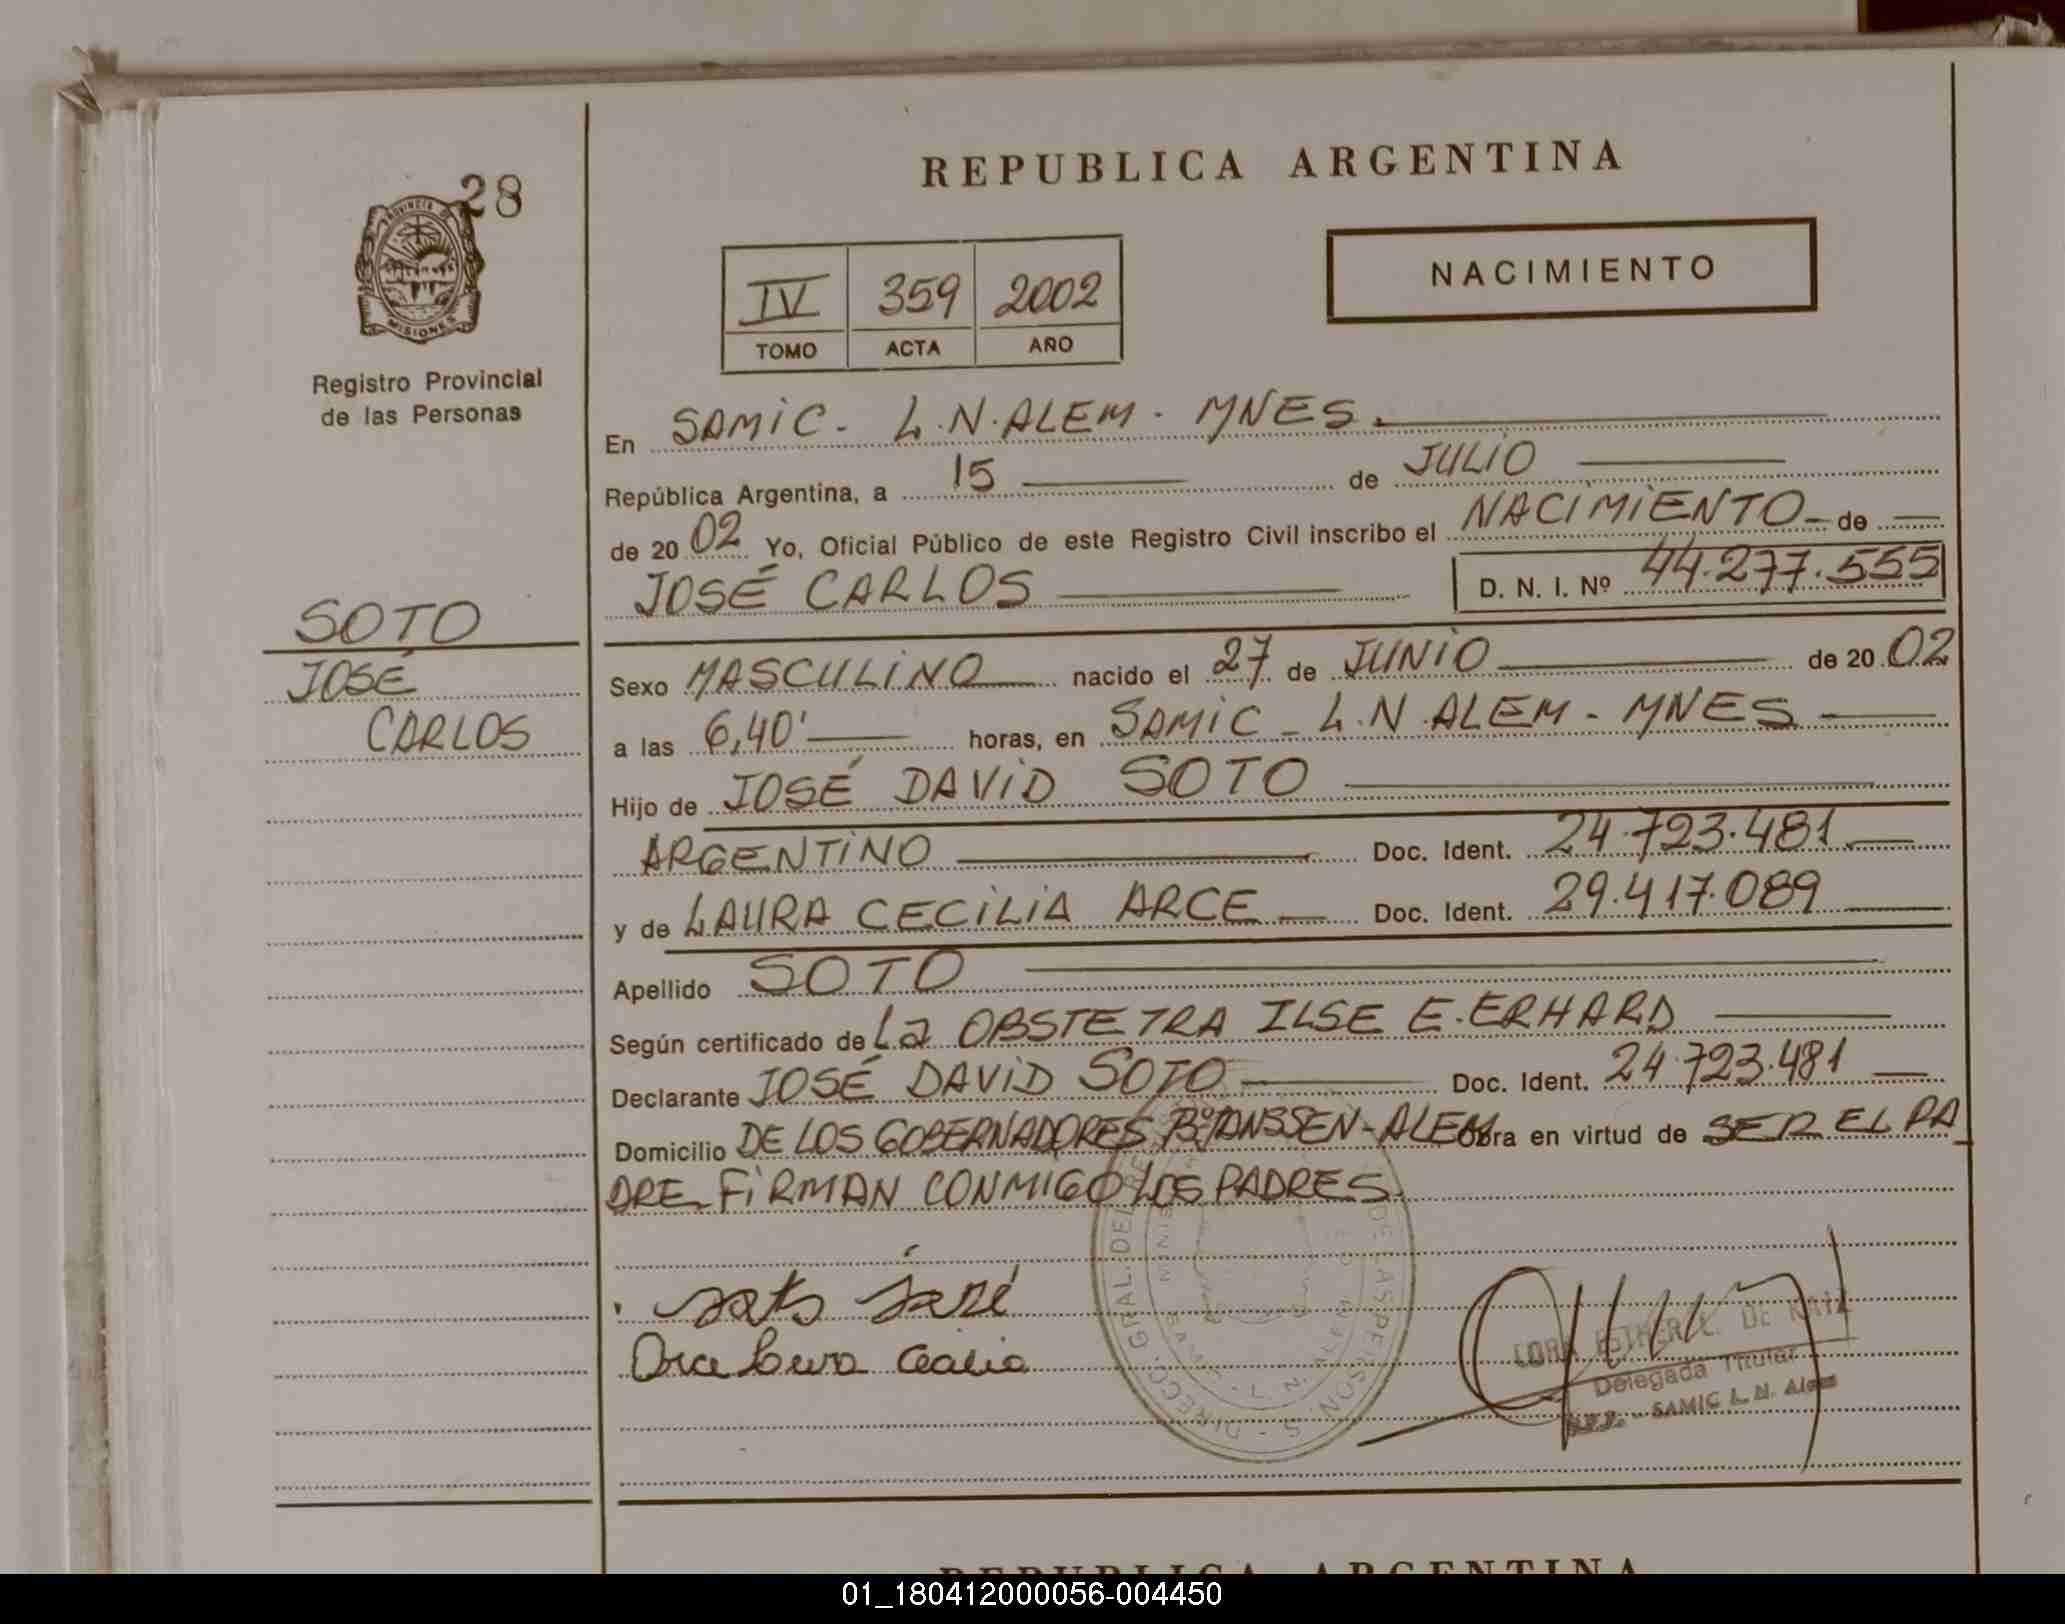 28
PROVINCIA DE
MISIONES
Registro Provincial
de las Personas
SOTO
JOSÉ
CARLOS
REPUBLICA ARGENTINA
NACIMIENTO
IV 359 2002
TOMO ACTA AÑO
En SAMIC - L.N. ALEM - MNES.
República Argentina, a 15 de JULIO
de 20 02 Yo, Oficial Público de este Registro Civil inscribo el NACIMIENTO de
JOSÉ CARLOS D. N. I. Nº 44.277.555
Sexo MASCULINO nacido el 27 de JUNIO de 20 02
a las 6,40' horas, en SAMIC - L.N. ALEM - MNES
Hijo de JOSÉ DAVID SOTO
ARGENTINO Doc. Ident. 24.723.481
y de LAURA CECILIA ARCE Doc. Ident. 29.417.089
Apellido SOTO
Según certificado de La OBSTETRA ILSE E. ERHARD
Declarante JOSÉ DAVID SOTO Doc. Ident. 24.723.481
Domicilio DE LOS GOBERNADORES Bº JANSSEN-ALEM Obra en virtud de SER EL PA
DRE_ FIRMAN CONMIGO LOS PADRES.
soto José
Arce Laura Cecilia
ESTHER L. De
Delegada Titular
SAMIC L.N. Alem
REPUBLICA ARGENTINA
01_180412000056-004450